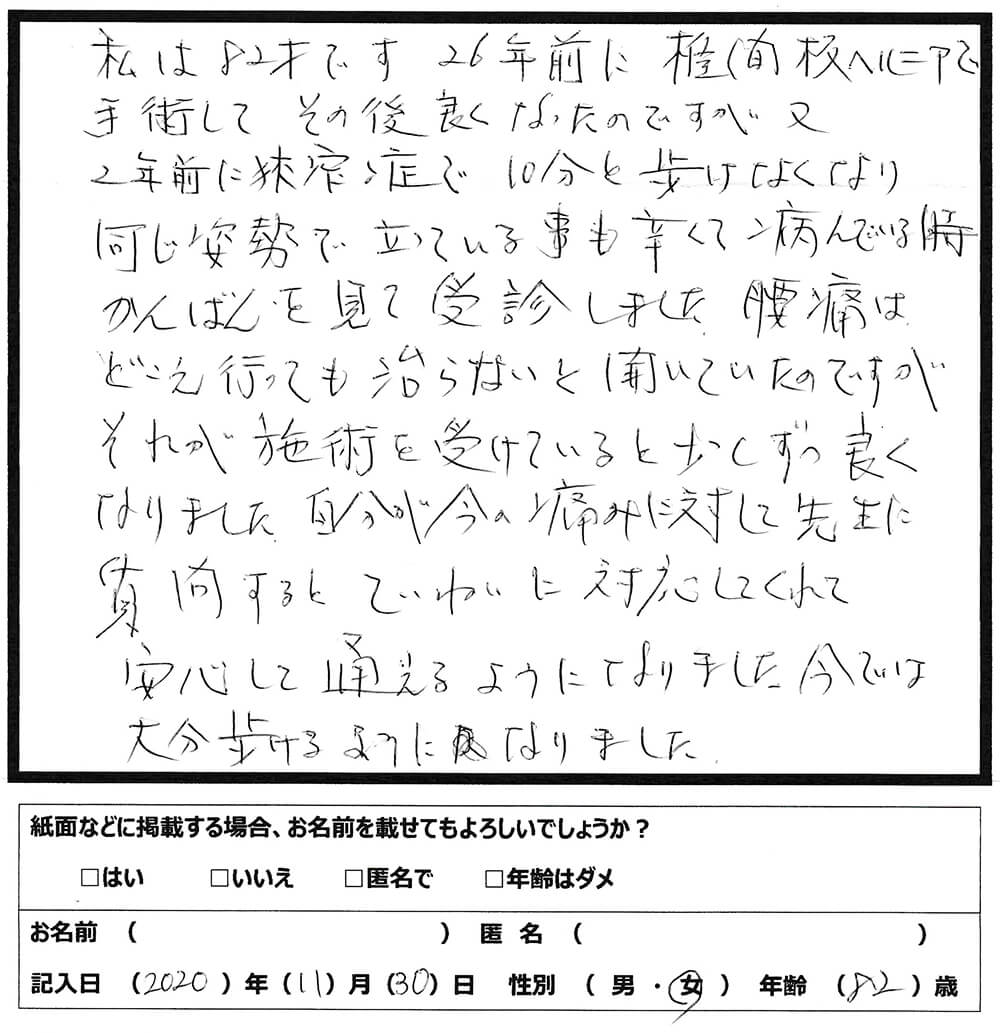 私は82才です 26年前に椎間板ヘルニアで
手術して その後良くなったのですが 又
2年前に狭窄症で 10分と歩けなくなり
同じ姿勢で立っている事も辛くて病んでいる時
かんばんを見て受診しました 腰痛は
どこえ行っても治らないと聞いていたのですが
それが施術を受けていると少しずつ良く
なりました 自分が今の痛みに対して先生に
質問するとていねいに対応してくれて
安心して通えるようになりました 今では
大分歩けるようになりました
紙面などに掲載する場合、お名前を載せてもよろしいでしょうか？
□はい □いいえ □匿名で □年齢はダメ
お名前 （ ） 匿名 （ ）
記入日 （2020）年（11）月（30）日 性別 （ 男 ・ 女 ） 年齢 （82）歳